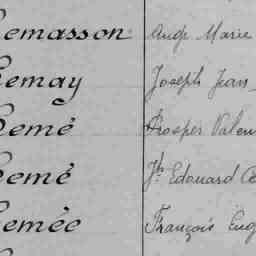 Lemasson Aug. Marie
Lemay Joseph Jean
Lemé Prosper Valen
Lemé Jh Edouard
Lemée François Eug